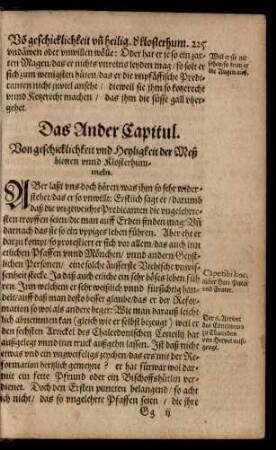 Võ geschicklichkeit vñ heilig. d' klosterhum. 225
vndåwen oder vnwillen wölle: Oder hat er je so ein zar-
ten Magen/ das er nichts vnreins leyden mag/ so solt er
sich zum wenigsten hüten/ das er die vnpfäffische Predi-
canten nicht zuviel ansehe/ dieweil sie jhn so kotzerecht
vnnd Ketzerecht machen/ das jhm die füsse gall vber-
gehet.
Weil er sie nit
sehen/
die Augen
Das Ander Capitul.
Von geschicklichkeit vnd Heyligkeit der Meß
bienen vnnd Klosterhum-
meln.
ABer laßt vns doch hören/ was jhm so sehr wider-
stehet/ das er so vnwill: Erstlich sagt er/ darumb
daß die vngeweichte Predicanten die vngelehrte-
sten tropffen seien/ die man auff Erden finden mag: Vñ
darnach das sie so ein vppiges leben führen. Aber ehe er
darzu kompt/ so protestiert er sich vor allem/ das auch inn
etlichen Pfaffen vnnd München/ vnnd andern Geyst-
lichen Personen/ eine solche äusserste Viehische vnwis-
senheit stecke: Ja daß auch etliche ein sehr böses leben füh-
ren. Inn welchem er sehr weißlich vnnd fürsichtig han-
delt/ auff daß man desto besser glaube/ das er der Refor-
mation so wol als ander beger: Wie man darauß leicht-
lich abnemmen kan (gleich wie er selbst bezeugt) weil er
den sechsten Arrickel des Chalcedonischen Concilij hat
außgelegt vnnd inn truck außgehn lassen. Ist daß nicht
etwas vnd ein vnzweifeligs zeychen/ das ers mit der Re-
formation hertzlich gemeyne? er hat fürwar wol dar-
mit ein fette Pfrund oder ein Bischoffshütlin ver-
dienet. Doch den Ersten puncten belangend/ so acht
ich nicht/ das so vngelehrte Pfaffen seien/ die jhre
Capetibi hoc,
Der 6. Articul
des Concilium
zu Chalcedon
von Hervet auß-
gelegt.
Gg ij